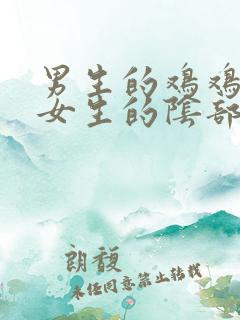 男生的鸡鸡
女生的陰部
朗馥
未经同意禁止转载